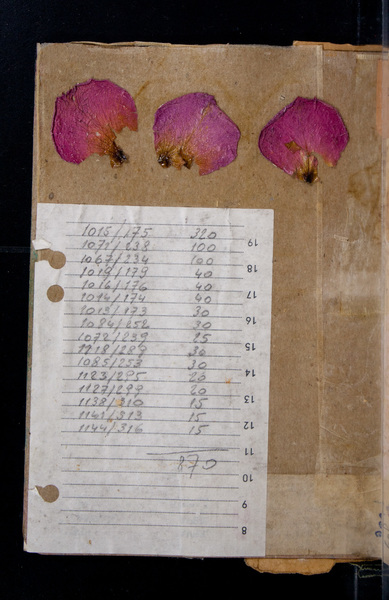 1015/175 320
1071/238 100
1067/234 100
1019/179 40
1016/176 40
1014/174 40
1013/173 30
1084/252 30
1072/239 25
1118/289 30
1085/253 30
1123/295 20
1127/299 20
1138/310 15
1141/313 15
1144/316 15
870
19
18
17
16
15
14
13
12
11
10
9
8